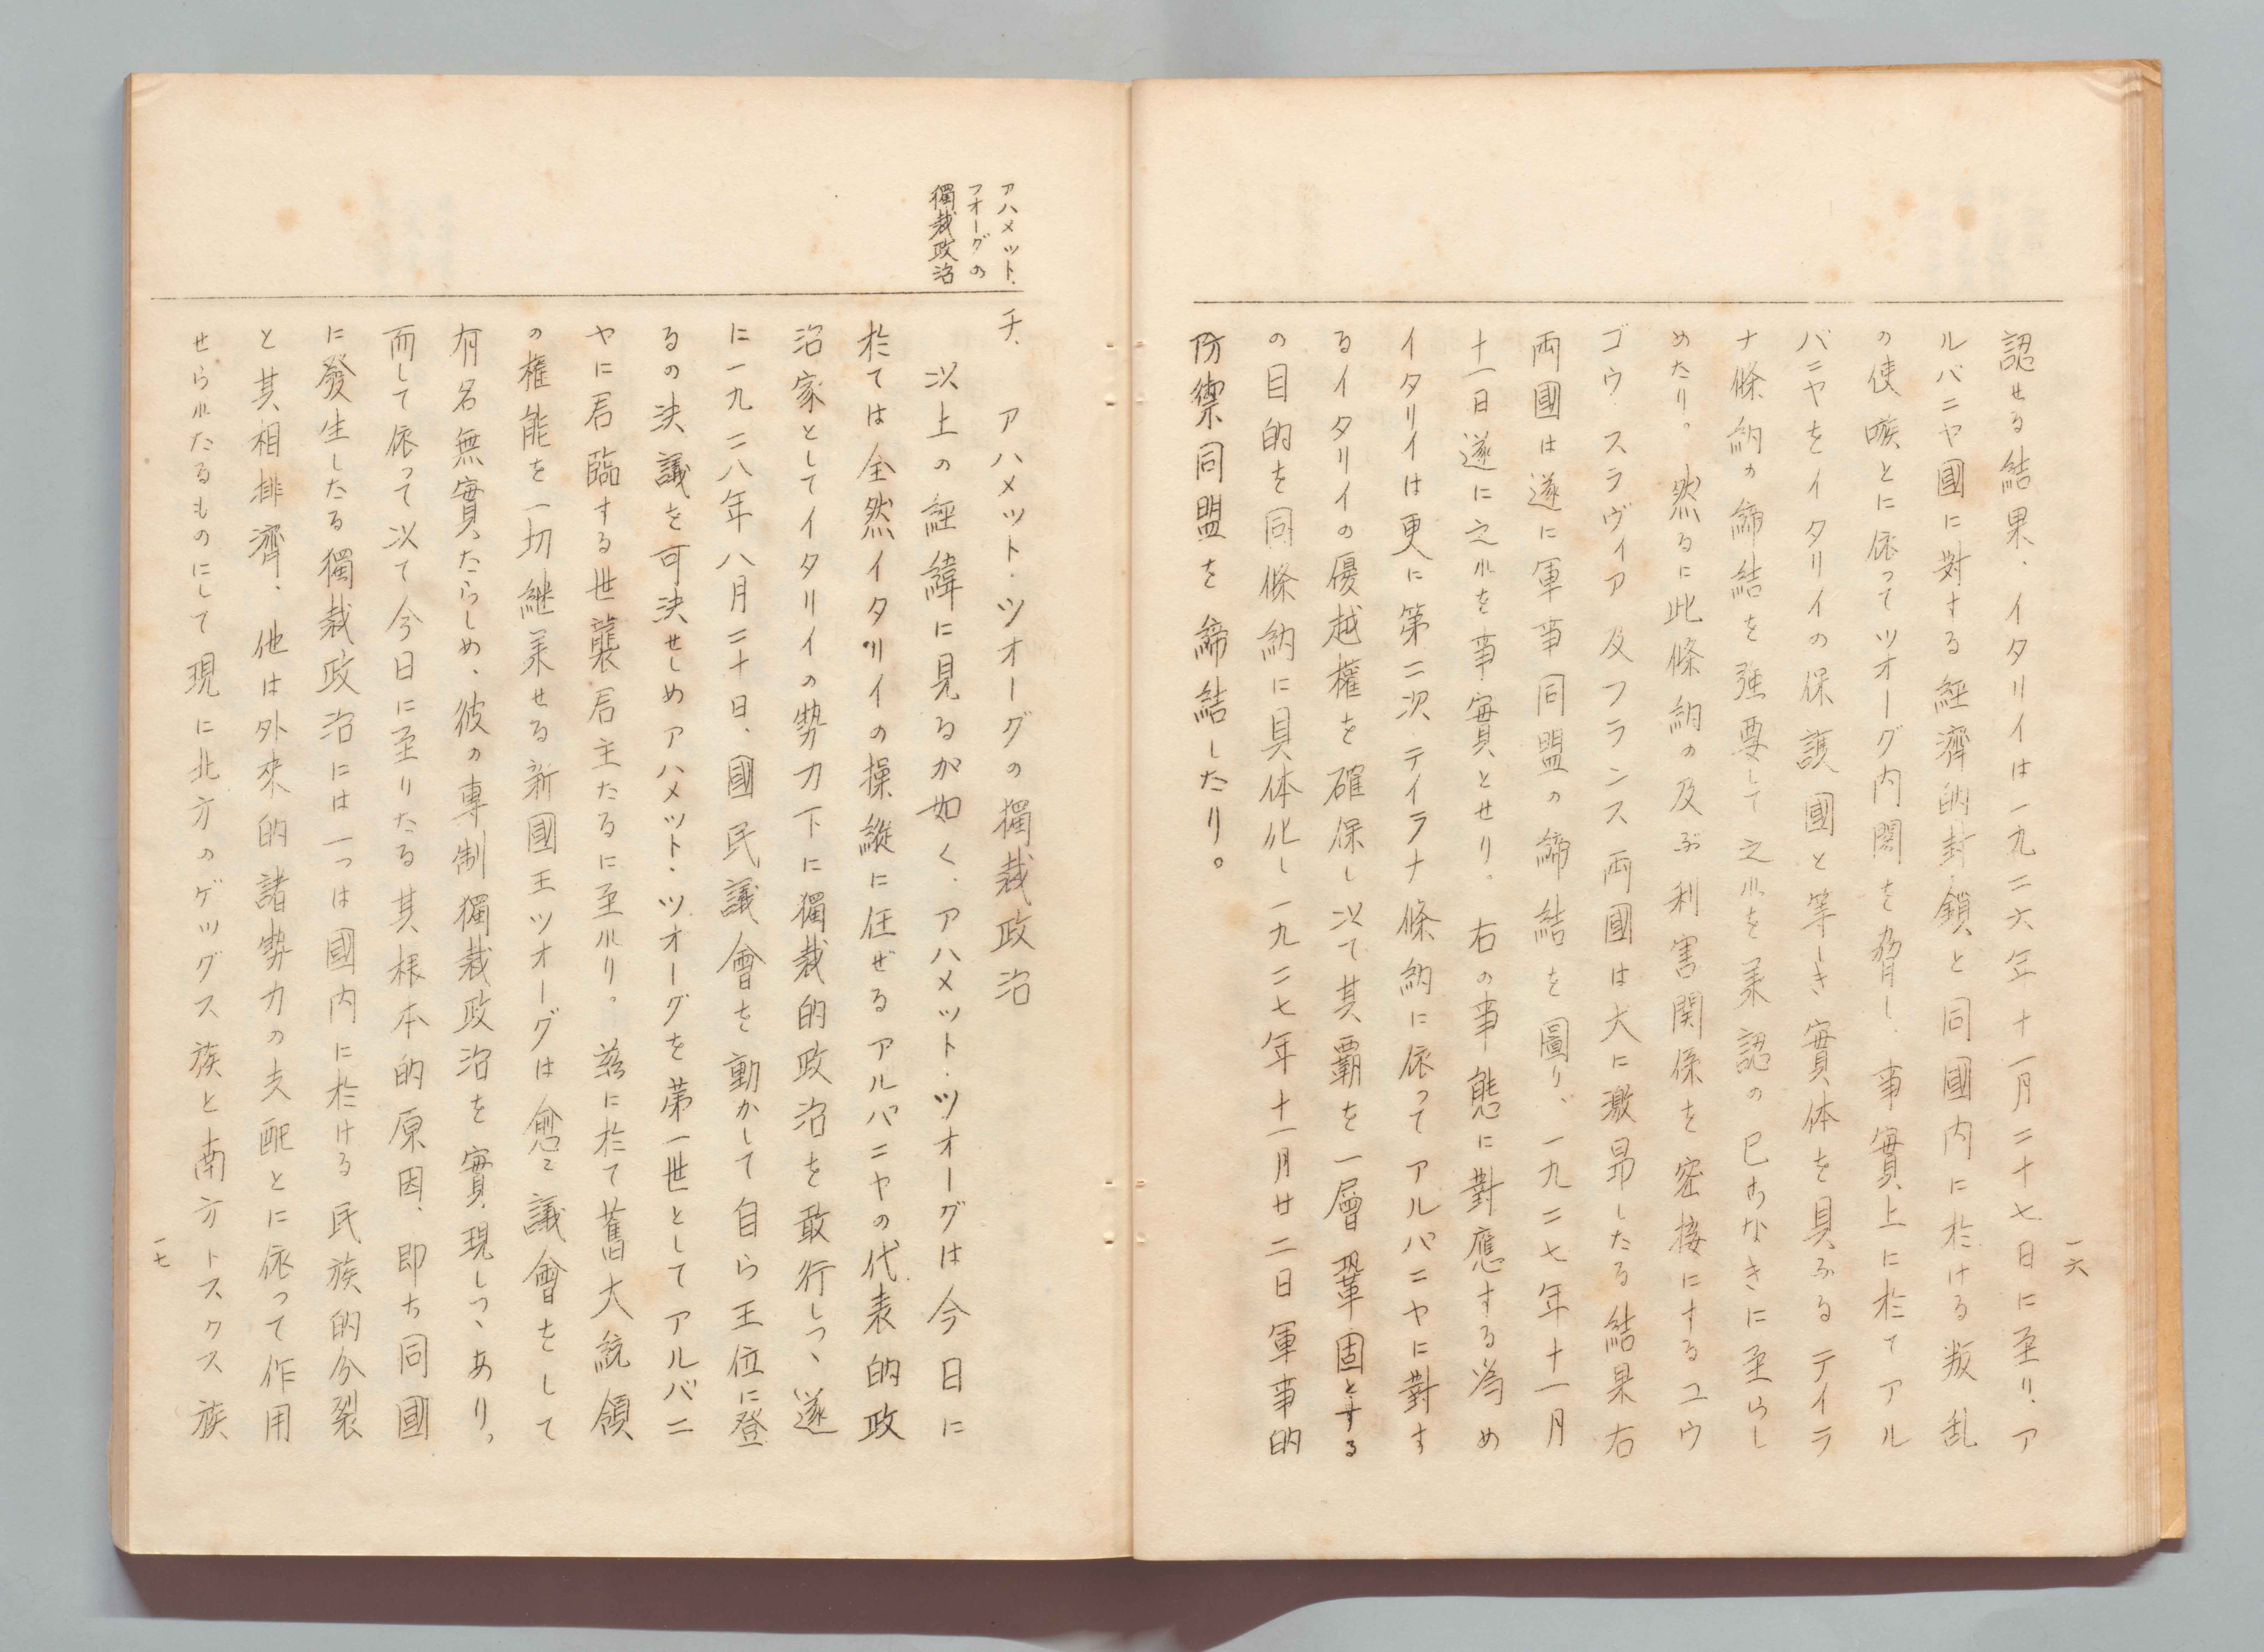 一六
認せる結果、イタリイは一九二六年十一月二十七日に至り、ア
ルバニヤ國に對する經濟的封鎖と同國内に於ける叛乱
の使嗾とに依ってツオーグ内閣を脅し、事實上に於てアル
バニヤをイタリイの保護國と等しき實体を具ふるテイラ
ナ條約の締結を強要して之れを承認の已むなきに至らし
めたり。然るに此條約の及ぶ利害関係を密接にするユウ
ゴウスラヴィア及フランス両國は大に激昂したる結果右
両國は遂に軍事同盟の締結を圖り、一九二七年十一月
十一日遂に之れを事實とせり。右の事態に對應する為め
イタリイは更に第二次テイラナ條約に依ってアルバニヤに對す
るイタリイの優越權を確保し以て其覇を一層鞏固とする
の目的を同條約に具体化し一九二七年十一月廿二日軍事的
防禦同盟を締結したり。
アハメット、
フオーグの
獨裁政治
チ、アハメット・ツオーグの獨裁政治
以上の經緯に見るが如く、アハメット・ツオーグは今日に
於ては全然イタリイの操縦に任ぜるアルバニヤの代表的政
治家としてイタリイの勢力下に獨裁的政治を敢行しつヽ遂
に一九二八年八月二十日、國民議會を動かして自ら王位に登
るの決議を可決せしめアハメット・ツオーグを第一世としてアルバニ
ヤに君臨する世襲君主たるに至れり。茲に於て舊大統領
の権能を一切継承せる新國王ツオーグは愈々議會をして
有名無實たらしめ、彼の專制獨裁政治を實現しつヽあり。
而して依って以て今日に至りたる其根本的原因、即ち同國
に發生したる獨裁政治には一つは國内に於ける民族的分裂
と其相排濟、他は外來的諸勢力の支配とに依って作用
せられたるものにして現に北方のゲッグス族と南方トスクス族
一七